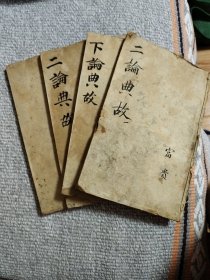 二論典故
下論典故
二論典故